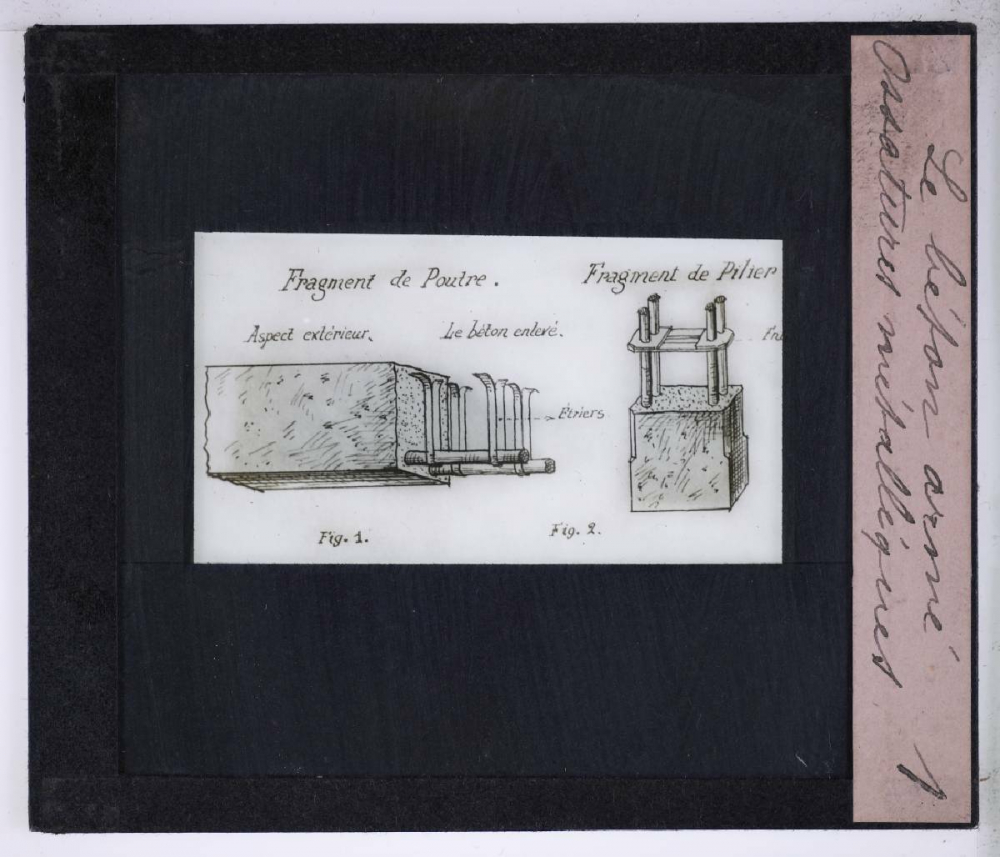 Fragment de Poutre.
Fragment de Pilier
Aspect extérieur.
Le béton enlevé.
Étriers
Fig. 1.
Fig. 2.
Le béton armé 1
Ossatures métalliques